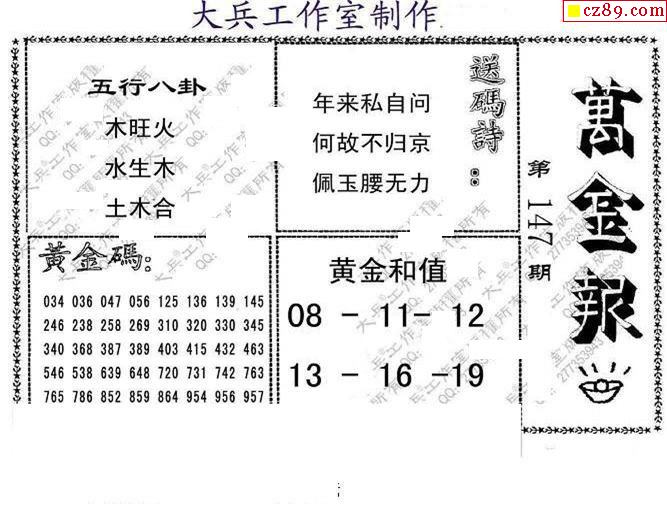 大兵工作室制作.
cz89.com
五行八卦
木旺火
水生木
土木合
送碼詩：
年来私自问
何故不归京
佩玉腰无力
萬金報
第147期
黃金碼：
034 036 047 056 125 136 139 145
246 238 258 269 310 320 330 345
340 368 387 389 403 415 432 463
546 538 639 648 720 731 742 763
765 786 852 859 864 954 956 957
黄金和值
08 - 11 - 12
13 - 16 -19